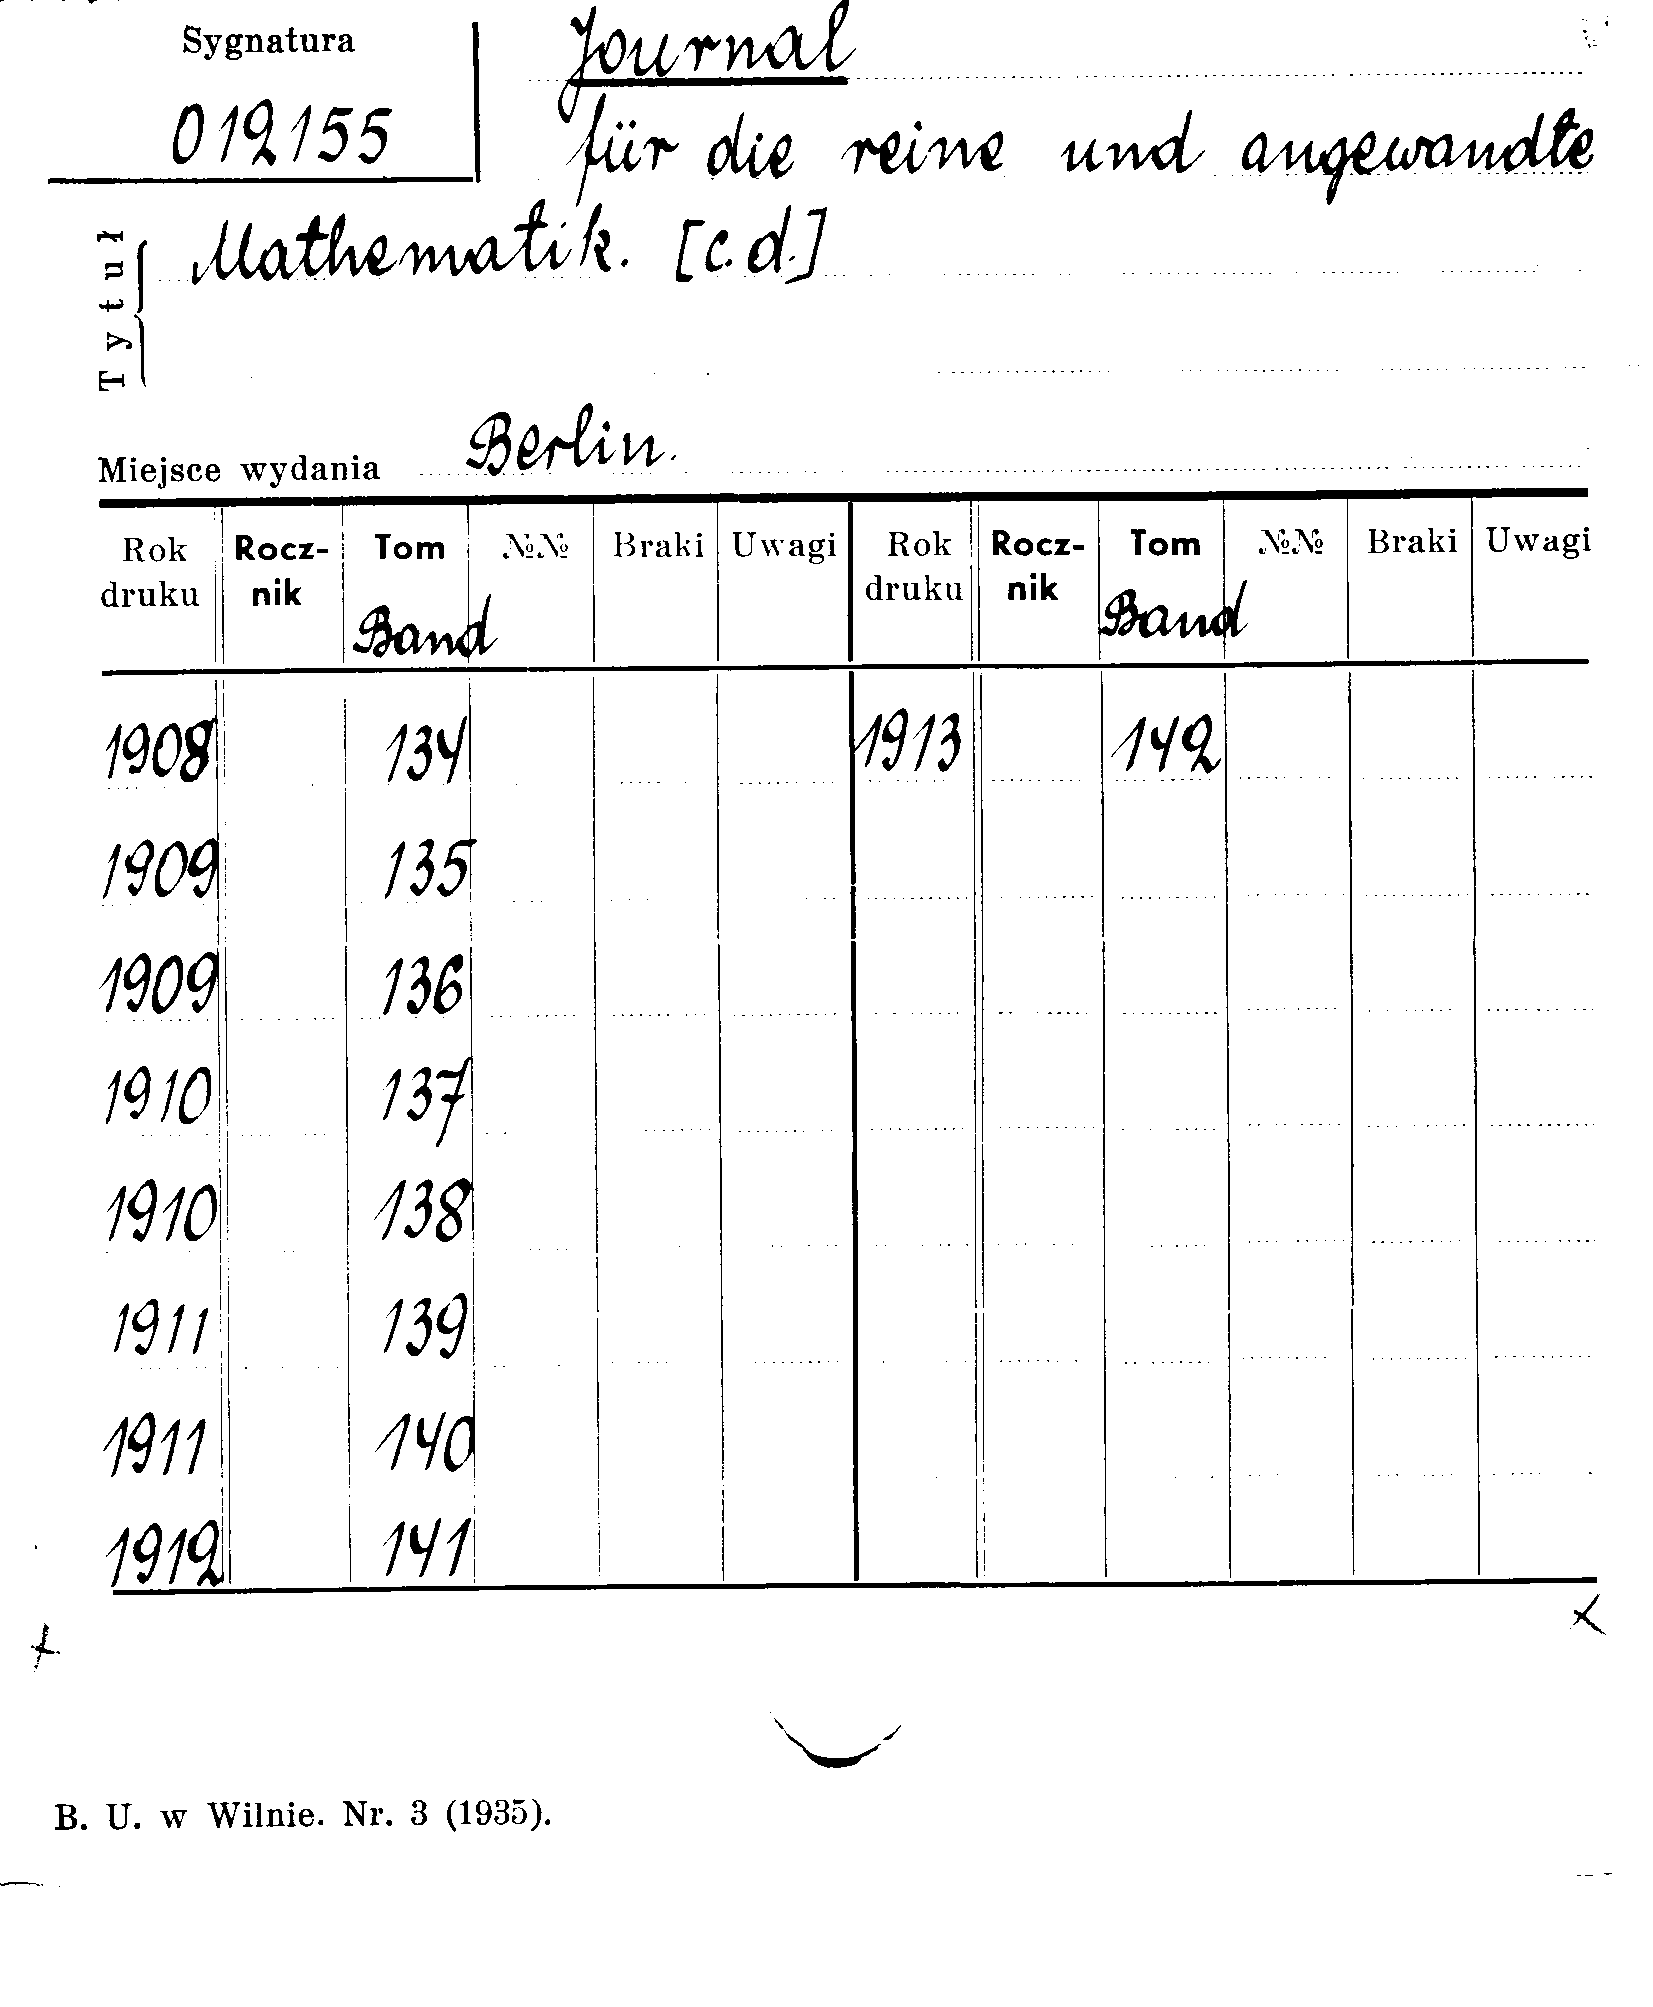 Sygnatura
012155
Journal
für die reine und angewandte
Tytuł
Mathematik. [c.d.]
Miejsce wydania Berlin.
Rok druku Rocz-nik Tom №№ Braki Uwagi Rok druku Rocz-nik Tom №№ Braki Uwagi
Band Band
1908 134 1913 142
1909 135
1909 136
1910 137
1910 138
1911 139
1911 140
1912 141
B. U. w Wilnie. Nr. 3 (1935).